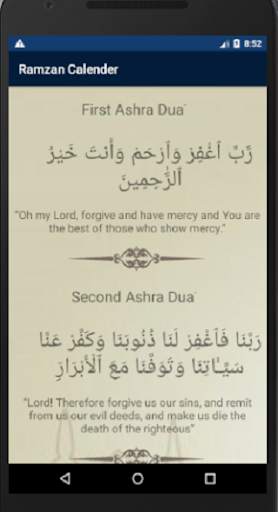 8:52
Ramzan Calender
First Ashra Dua`
رَّبِّ ٱغْفِرْ وَٱرْحَمْ وَأَنتَ خَيْرُ
ٱلرَّٰحِمِينَ
“Oh my Lord, forgive and have mercy and You are
the best of those who show mercy.”
Second Ashra Dua`
رَبَّنَا فَٱغْفِرْ لَنَا ذُنُوبَنَا وَكَفِّرْ عَنَّا
سَيِّـَٔاتِنَا وَتَوَفَّنَا مَعَ ٱلْأَبْرَارِ
“Lord! Therefore forgive us our sins, and remit
from us our evil deeds, and make us die the
death of the righteous”